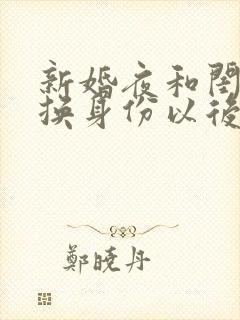 新婚夜和閨
換身份以後
鄭曉丹